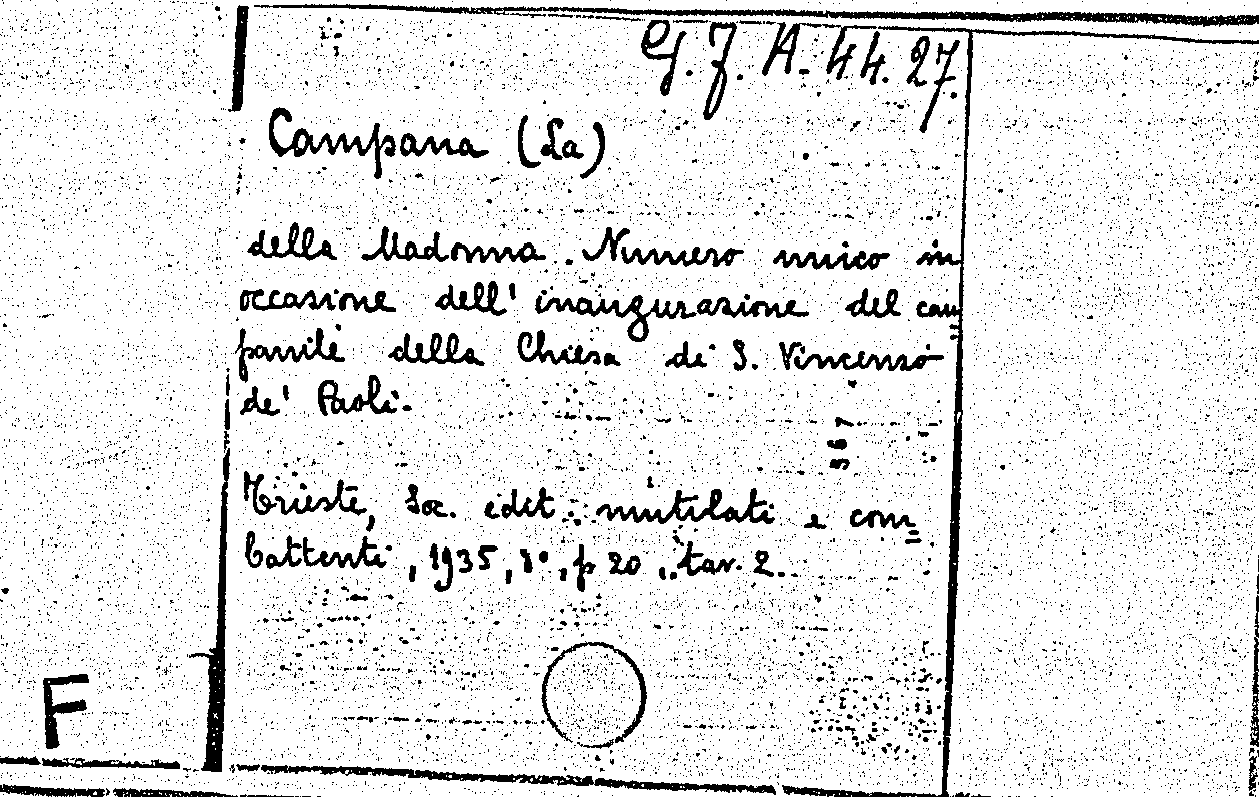 G. F. A. 44. 27.
Campana (La)
della Madonna. Numero unico in
occasione dell' inaugurazione del cam
panile della Chiesa di S. Vincenzo
de' Paoli.
367
Trieste, Soc. edit. mutilati e com
battenti, 1935, 8°, p 20, tav. 2.
F